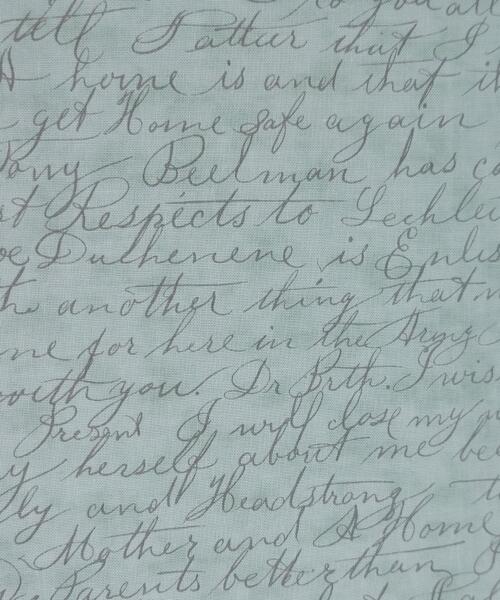 to you all
tell Father that I
A home is and that it
get Home safe again
Tony Beelman has
Respects to Lechle
Duchenene is Enlis
another thing that
me for here in the Army
with you. Dr Brth. I wis
Present I will close my
herself about me be
ly and Headstrong
Mother and A Home
Parents better than I